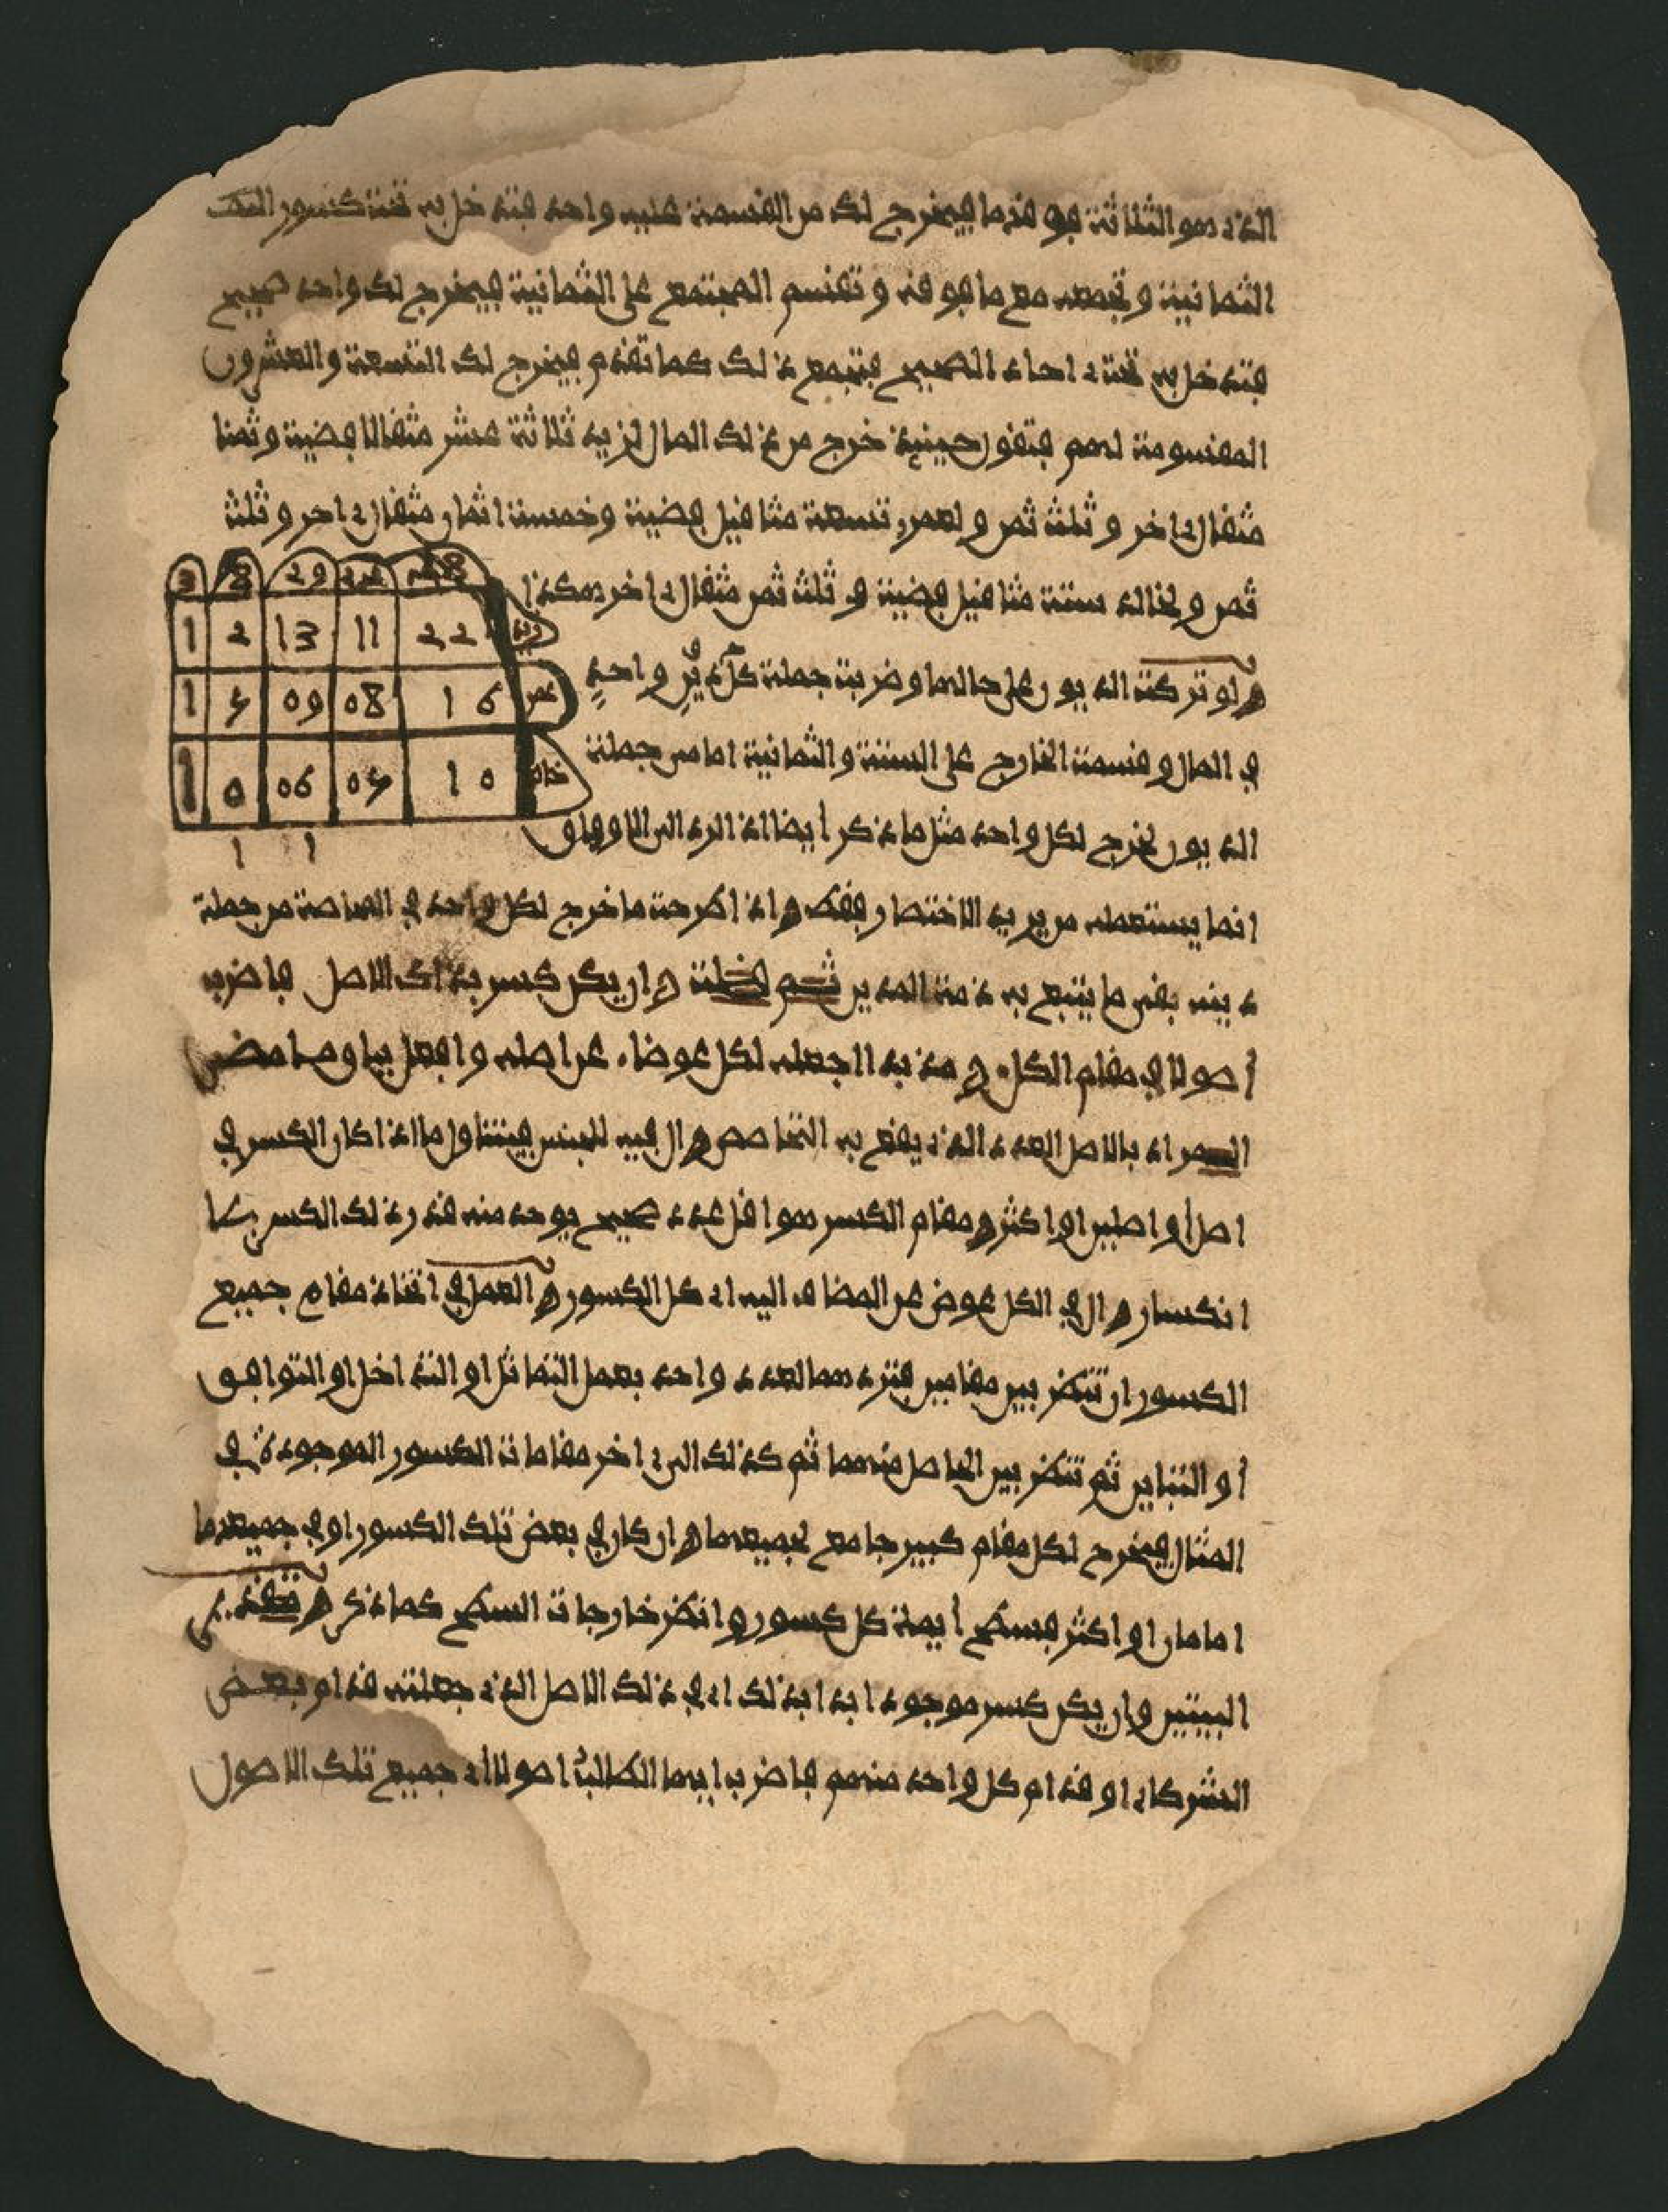 الذي هو الثلاثة فوقها فيخرج لك من القسمة عليه واحد فتدخل به تحت كسور
الثمانية وتجمعه مع ما فوقه وتقسم المجتمع على الثمانية فيخرج لك واحد صحيح
فتدخل به تحت احاد الصحيح فتجمع ذلك كما تقدم فيخرج لك التسعة والعشرون
المقسومة لهم فتقول حينئذ خرج من ذلك المال لزيد ثلاثة عشر مثقالا فضية وثمنا
مثقال اخر وثلث ثمن ولعمرو تسعة مثاقيل فضية وخمسة اثمان مثقال اخر وثلث
ثمن ولخالد ستة مثاقيل فضية وثلث ثمن مثقال اخر هكذا
3 8 29 24 48
1 2 13 11 22 زيد
1 5 09 08 16 عمر
1 0 06 05 10 خالد
1 1
ولو تركت الديون على حالها وضربت جملة كل دين واحد
في المال وقسمت الخارج على الستة والثمانية امامن جملة
الديون لخرج لكل واحد مثل ما ذكر أيضا اذ الرد الى الاوفاق
انما يستعمله من يريد الاختصار فقط واذا طرحت ما خرج لكل واحد في المحاصة من جملة
دينه بقي ما يتبع به ذمة المدين ثم قلت وان يكن كسر بذاك الاصل فاضرب
أصولا في مقام الكل مذ به اجعله لكل عوضا عن اصله وافعل بها وما مضى
المراد بالاصل العدد الذي يقع به التحاصص وال فيه للجنس فيتناول ما اذا كان الكسر في
اصل أو اصلين او اكثر ومقام الكسر هو اقل عدد صحيح يوجد منه قدر ذلك الكسر بلا
انكسار وال في الكل عوض عن المضاف اليه اي كل الكسور والعمل في اتخاذ مقام جميع
الكسور ان تنظر بين مقامين فترد هما لعدد واحد بعمل التماثل او التداخل او التوافق
أو التباين ثم تنظر بين الحاصل منهما ثم كذلك الى اخر مقامات الكسور الموجودة في
المثال فيخرج لكل مقام كبير جامع لجميعها وان كان في بعض تلك الكسور او في جميعها
امامان او اكثر فسطح أيمة كل كسور وانظر خارجات السطح كما ذكر وتقدير
البيتين وان يكن كسر موجودا بذا بذلك اي في ذلك الاصل الذي جعلته قدام بعض
الشركاء او قدام كل واحد منهم فاضرب ايها الطالب أصولا أي جميع تلك الاصول